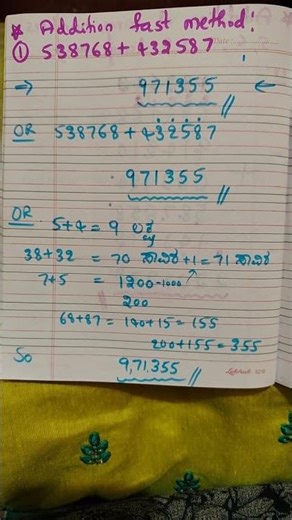 * Addition fast method!
① 538768 + 432587
→ 971355 ←
OR 538768 + 432587
971355
OR
5+4 = 9 ಲಕ್ಷ
38+32 = 70 ಸಾವಿರ +1 = 71 ಸಾವಿರ
7+5 = 1200 - 1000
200
68+87 = 140+15 = 155
200+155 = 355
So 9,71,355